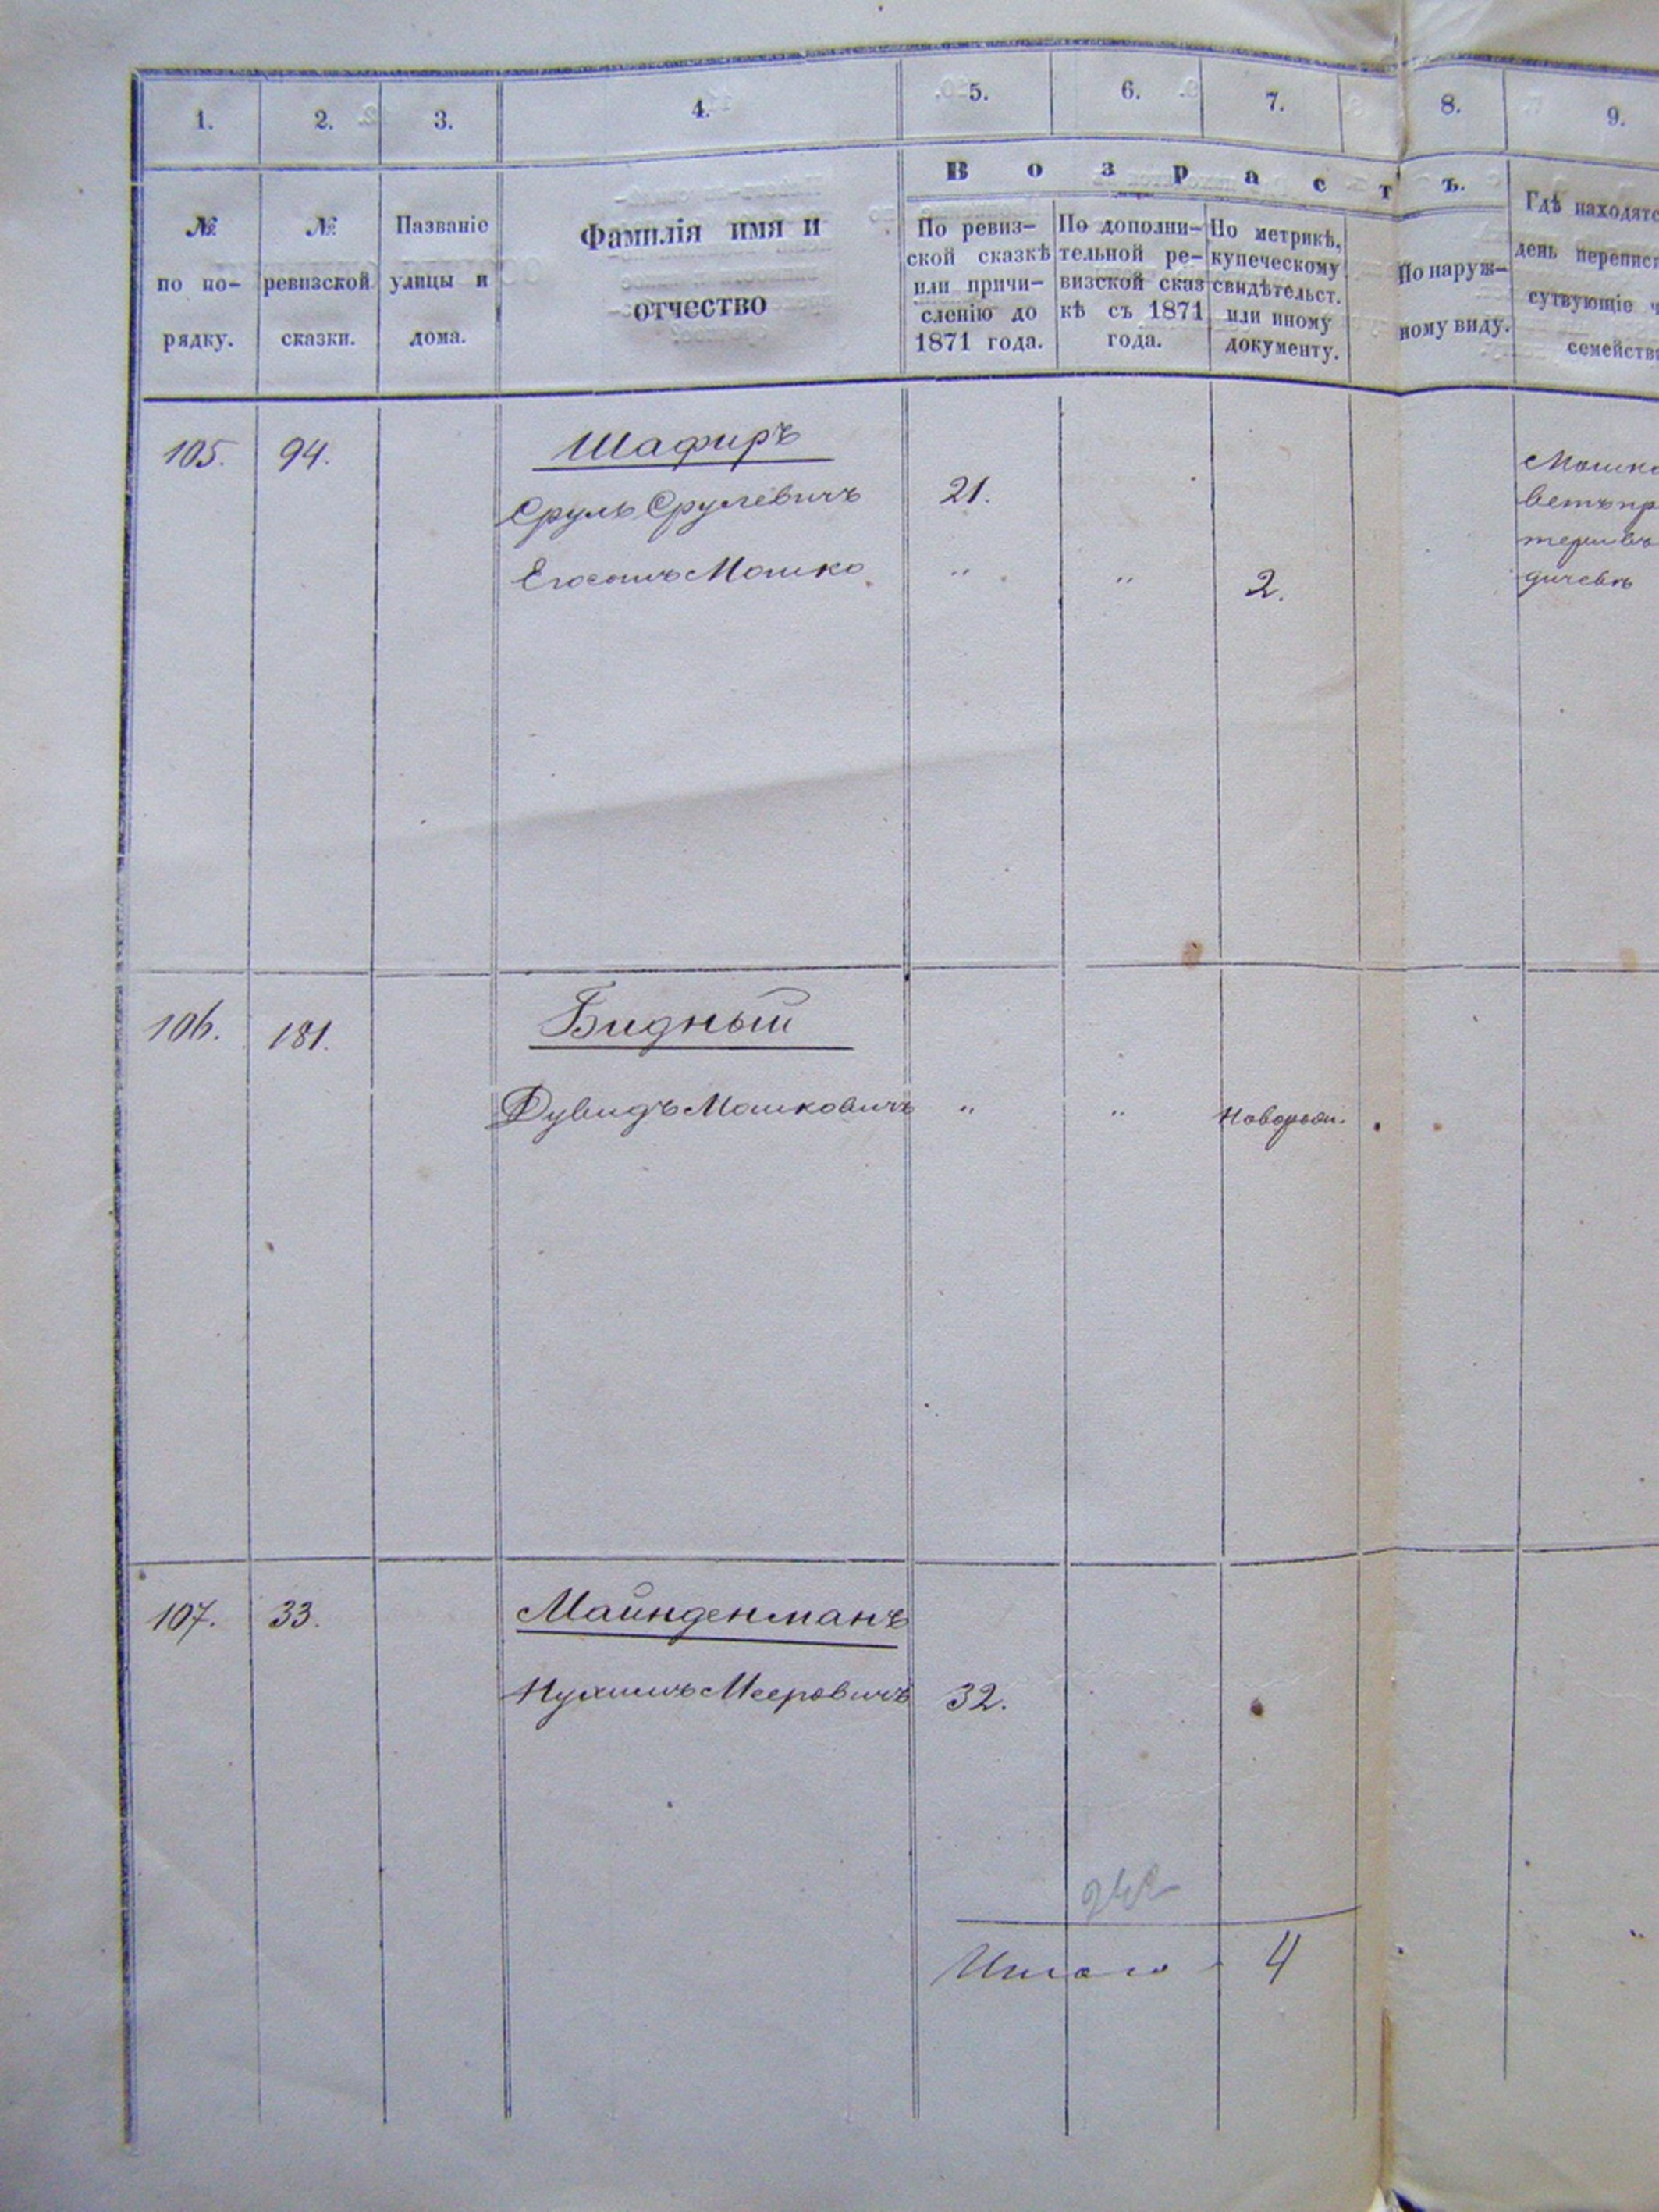 1. 2. 3. 4. 5. 6. 7. 8. 9.
Возрастъ.
№ по по-рядку.
№ ревизской сказки.
Названіе улицы и дома.
Фамилія имя и отчество
По ревиз-
ской сказкѣ
или причи-
сленію до
1871 года.
По дополни-
тельной ре-
визской сказ
кѣ съ 1871
года.
По метрикѣ,
купеческому
свидѣтельст.
или иному
документу.
По наруж-
ному виду.
Гдѣ находятс
день переписи
сутвующіе ч
семейств
105. 94. Шафиръ
Сруль Срулевичъ 21.
Его сынъ Мошко " " 2.
Мошко
106. 181. Бидный
Дувидъ Мошковичъ " " Новорожд.
107. 33. Майнденманъ
Нухимъ Мееровичъ 32.
Итого 4